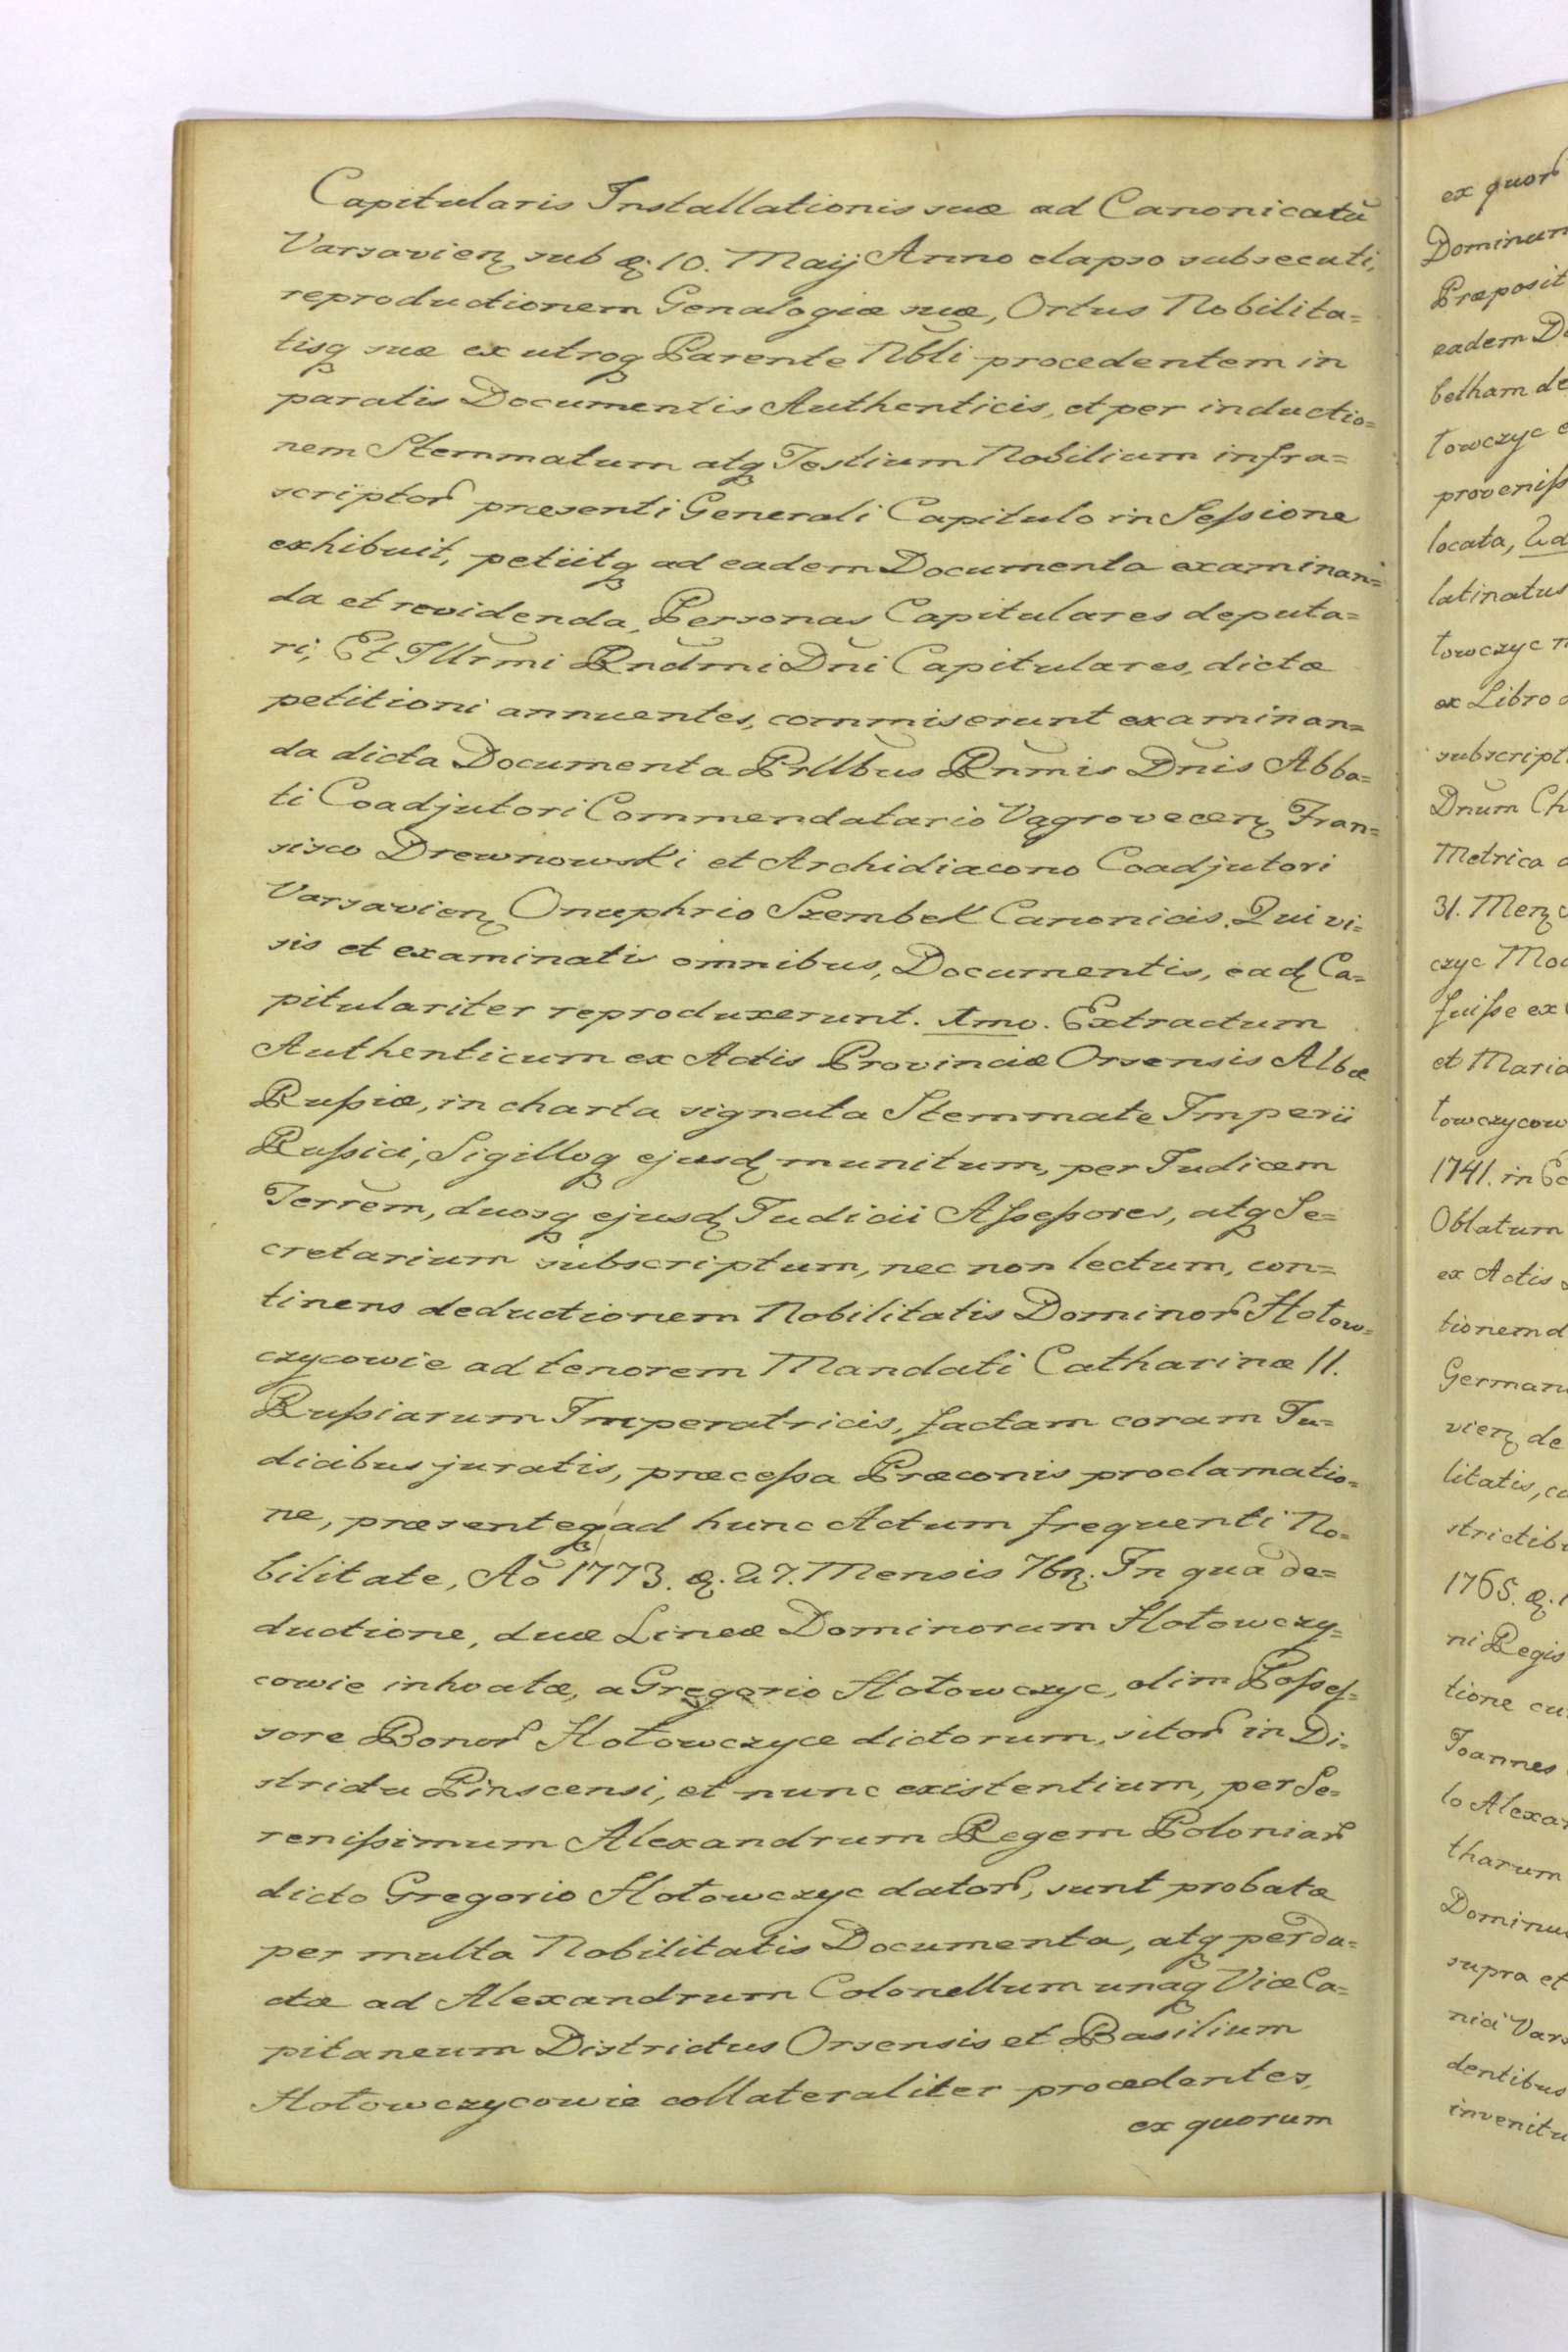 Capitularis Installationis suæ ad Canonicatū
Varsavieɳ sub ꝺ. 10. Maij Anno elapso subsecuti,
reproductionem Genalogiæ suæ, Ortus Nobilita=
tisq suæ ex utroq Parente Nbli procedentem in
paratis Documentis Authenticis, et per inductio=
nem Stemmatum atq Testium Nobilium infra=
scriptoꝝ præsenti Generali Capitulo in Seſsione
exhibuit, petiitq ad eadem Documenta examinan=
da et revidenda, Personas Capitulares deputa=
ri; Et Illrmi Rndmi Dni Capitulares, dictæ
petitioni annuentes, commiserunt examinan=
da dicta Documenta Prllbus Rnmis Dnis Abba=
ti Coadjutori Commendatario Vągrovecenɳ Fran=
sisco Drewnowski et Archidiacono Coadjutori
Varsavienɳ Onuphrio Szembek Canonicis. Qui vi=
sis et examinatis omnibus, Documentis, eadɳ Ca=
pitulariter reproduxerunt. 1mo. Extractum
Authenticum ex Actis Provinciæ Orsensis Albæ
Ruſsiæ, in charta signata Stemmate Imperii
Ruſsici, Sigilloq ejusdɳ munitum, per Judicem
Terrem, duosq ejusdɳ Judicii Aſseſsores, atq Se=
cretarium subscriptum, nec non lectum, con=
tinens deductionem Nobilitatis Dominoꝝ Hołow=
czycowie ad tenorem Mandati Catharinæ II.
Ruſsiarum Imperatricis, factam coram Ju=
dicibus juratis, præceſsa Præconis proclamatio=
ne, præsenteq ad hunc Actum frequenti No=
bilitate, Aō 1773. ꝺ. 27. Mensis 7bɳ. In qua de=
ductione, duæ Lineæ Dominorum Hołowczy=
cowie inhoatæ, a Gregorio Hołowczyc, olim Poſseſ=
sore Bonoꝝ Hołowczyce dictorum, sitoꝝ in Di=
strictu Pinscensi, et nunc existentium, per Se=
reniſsimum Alexandrum Regem Poloniaꝝ
dicto Gregorio Hołowczyc datoꝝ, sunt probatæ
per multa Nobilitatis Documenta, atq perdu=
ctæ ad Alexandrum Colonellum unaq Vice Ca=
pitaneum Districtus Orsensis et Basilium
Hołowczycowie collateraliter procedentes,
ex quorum
ex quoꝝ
Dominum
Præposit
eadem
belham de
łowczyc
proveniſs
locata,
latinatus
łowczyc
ex Libro
subscript
Dnum Ch
Metrica
31. Menɳ
czyc
fuiſse ex
et Maria
łowczycow
1741. in
Oblatum
ex Actis
tionem d
German
vienɳ de
litatis,
strictib
1765. ꝺ.
ni Regis
tione
Joannes
lo Alexan
tharum
Dominu
supra et
nici Vars
dentibus
invenitu